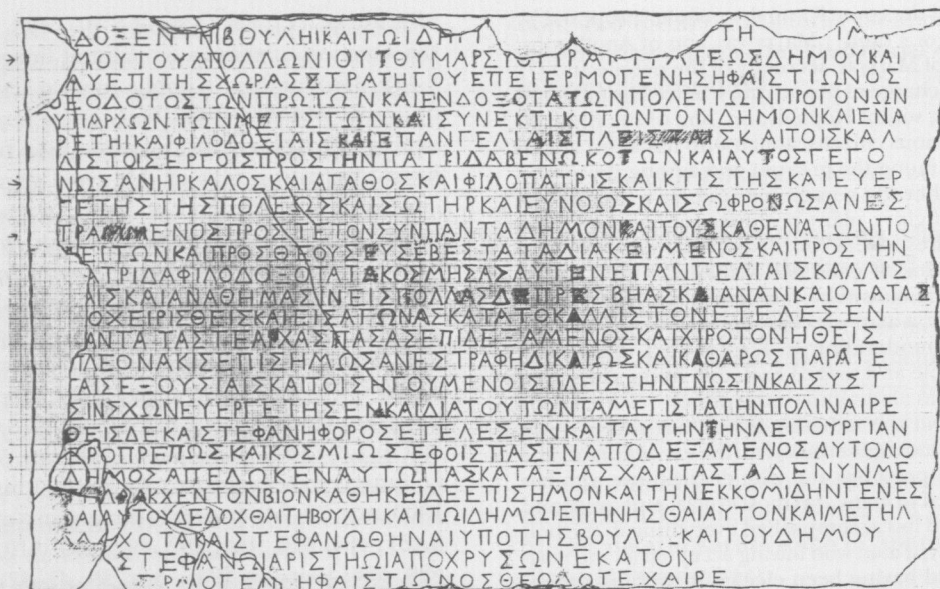 ΔΟΞΕΝΤΗΙΒΟΥΛΗΙΚΑΙΤΩΙΔΗ ΤΗ
ΜΟΥΤΟΥΑΠΟΛΛΩΝΙΟΥΤΟΥΜΑΡΣΥΟΥ ΤΕΩΣΔΗΜΟΥΚΑΙ
ΑΥΕΠΙΤΗΣΧΩΡΑΣΣΤΡΑΤΗΓΟΥΕΠΕΙΕΡΜΟΓΕΝΗΣΗΦΑΙΣΤΙΩΝΟΣ
ΘΕΟΔΟΤΟΣΤΩΝΠΡΩΤΩΝΚΑΙΕΝΔΟΞΟΤΑΤΩΝΠΟΛΕΙΤΩΝΠΡΟΓΟΝΩΝ
ΥΠΑΡΧΩΝΤΩΝΜΕΓΙΣΤΩΝΚΑΙΣΥΝΕΚΤΙΚΟΤΩΝΤΟΝΔΗΜΟΝΚΑΙΕΝΑ
ΡΕΤΗΙΚΑΙΦΙΛΟΔΟΞΙΑΙΣΚΑΙΕΠΑΝΓΕΛΙΑΙΣΠΛΕΙΣΤΑΙΣΚΑΙΤΟΙΣΚΑΛ
ΛΙΣΤΟΙΣΕΡΓΟΙΣΠΡΟΣΤΗΝΠΑΤΡΙΔΑΒΕΝΩΚΟΤΩΝΚΑΙΑΥΤΟΣΓΕΓΟ
ΝΩΣΑΝΗΡΚΑΛΟΣΚΑΙΑΤΑΘΟΣΚΑΙΦΙΛΟΠΑΤΡΙΣΚΑΙΚΤΙΣΤΗΣΚΑΙΕΥΕΡ
ΓΕΤΗΣΤΗΣΠΟΛΕΩΣΚΑΙΣΩΤΗΡΚΑΙΕΥΝΟΩΣΚΑΙΣΩΦΡΟΝΩΣΑΝΕΣ
ΤΡΑΜΜΕΝΟΣΠΡΟΣΤΕΤΟΝΣΥΝΠΑΝΤΑΔΗΜΟΝΚΑΙΤΟΥΣΚΑΘΕΝΑΤΩΝΠΟ
ΛΕΙΤΩΝΚΑΙΠΡΟΣΘΕΟΥΣΕΥΣΕΒΕΣΤΑΤΑΔΙΑΚΕΙΜΕΝΟΣΚΑΙΠΡΟΣΤΗΝ
ΤΡΙΔΑΦΙΛΟΔΟΞΟΤΑΤΑΚΟΣΜΗΣΑΣΑΥΤΗΝΕΠΑΝΓΕΛΙΑΙΣΚΑΛΛΙΣ
ΑΙΣΚΑΙΑΝΑΘΗΜΑΣΙΝΕΙΣΠΟΛΛΑΣΔΕΠΡΕΣΒΗΑΣΚΑΙΑΝΑΝΚΑΙΟΤΑΤΑΣ
ΟΧΕΙΡΙΣΘΕΙΣΚΑΙΕΙΣΑΓΩΝΑΣΚΑΤΑΤΟΚΑΛΛΙΣΤΟΝΕΤΕΛΕΣΕΝ
ΑΝΤΑΤΑΣΤΕΑΡΧΑΣΠΑΣΑΣΕΠΙΔΕΞΑΜΕΝΟΣΚΑΙΧΙΡΟΤΟΝΗΘΕΙΣ
ΠΛΕΟΝΑΚΙΣΕΠΙΣΗΜΩΣΑΝΕΣΤΡΑΦΗΔΙΚΑΙΩΣΚΑΙΚΑΘΑΡΩΣΠΑΡΑΤΕ
ΤΑΙΣΕΞΟΥΣΙΑΙΣΚΑΙΤΟΙΣΗΓΟΥΜΕΝΟΙΣΠΛΕΙΣΤΗΝΓΝΩΣΙΝΚΑΙΣΥΣΤ
ΣΙΝΣΧΩΝΕΥΕΡΓΕΤΗΣΕΝΚΑΙΔΙΑΤΟΥΤΩΝΤΑΜΕΓΙΣΤΑΤΗΝΠΟΛΙΝΑΙΡΕ
ΘΕΙΣΔΕΚΑΙΣΤΕΦΑΝΗΦΟΡΟΣΕΤΕΛΕΣΕΝΚΑΙΤΑΥΤΗΝΤΗΝΛΕΙΤΟΥΡΓΙΑΝ
ΕΡΟΠΡΕΠΩΣΚΑΙΚΟΣΜΙΩΣΕΦΟΙΣΠΑΣΙΝΑΠΟΔΕΞΑΜΕΝΟΣΑΥΤΟΝΟ
ΔΗΜΟΣΑΠΕΔΩΚΕΝΑΥΤΩΙΤΑΣΚΑΤΑΞΙΑΣΧΑΡΙΤΑΣΤΑΔΕΝΥΝΜΕ
ΑΚΧΕΝΤΟΝΒΙΟΝΚΑΘΗΚΕΙΔΕΕΠΙΣΗΜΟΝΚΑΙΤΗΝΕΚΚΟΜΙΔΗΝΓΕΝΕΣ
ΘΑΙΑΥΤΟΥΔΕΔΟΧΘΑΙΤΗΒΟΥΛΗΚΑΙΤΩΙΔΗΜΩΙΕΠΗΝΗΣΘΑΙΑΥΤΟΝΚΑΙΜΕΤΗΛ
ΛΑΧΟΤΑΚΑΙΣΤΕΦΑΝΩΘΗΝΑΙΥΠΟΤΗΣΒΟΥΛ ΚΑΙΤΟΥΔΗΜΟΥ
ΣΤΕΦΑΝΩΙΑΡΙΣΤΗΩΙΑΠΟΧΡΥΣΩΝΕΚΑΤΟΝ
ΕΡΜΟΓΕΝΗΗΦΑΙΣΤΙΩΝΟΣΘΕΟΔΟΤΕΧΑΙΡΕ